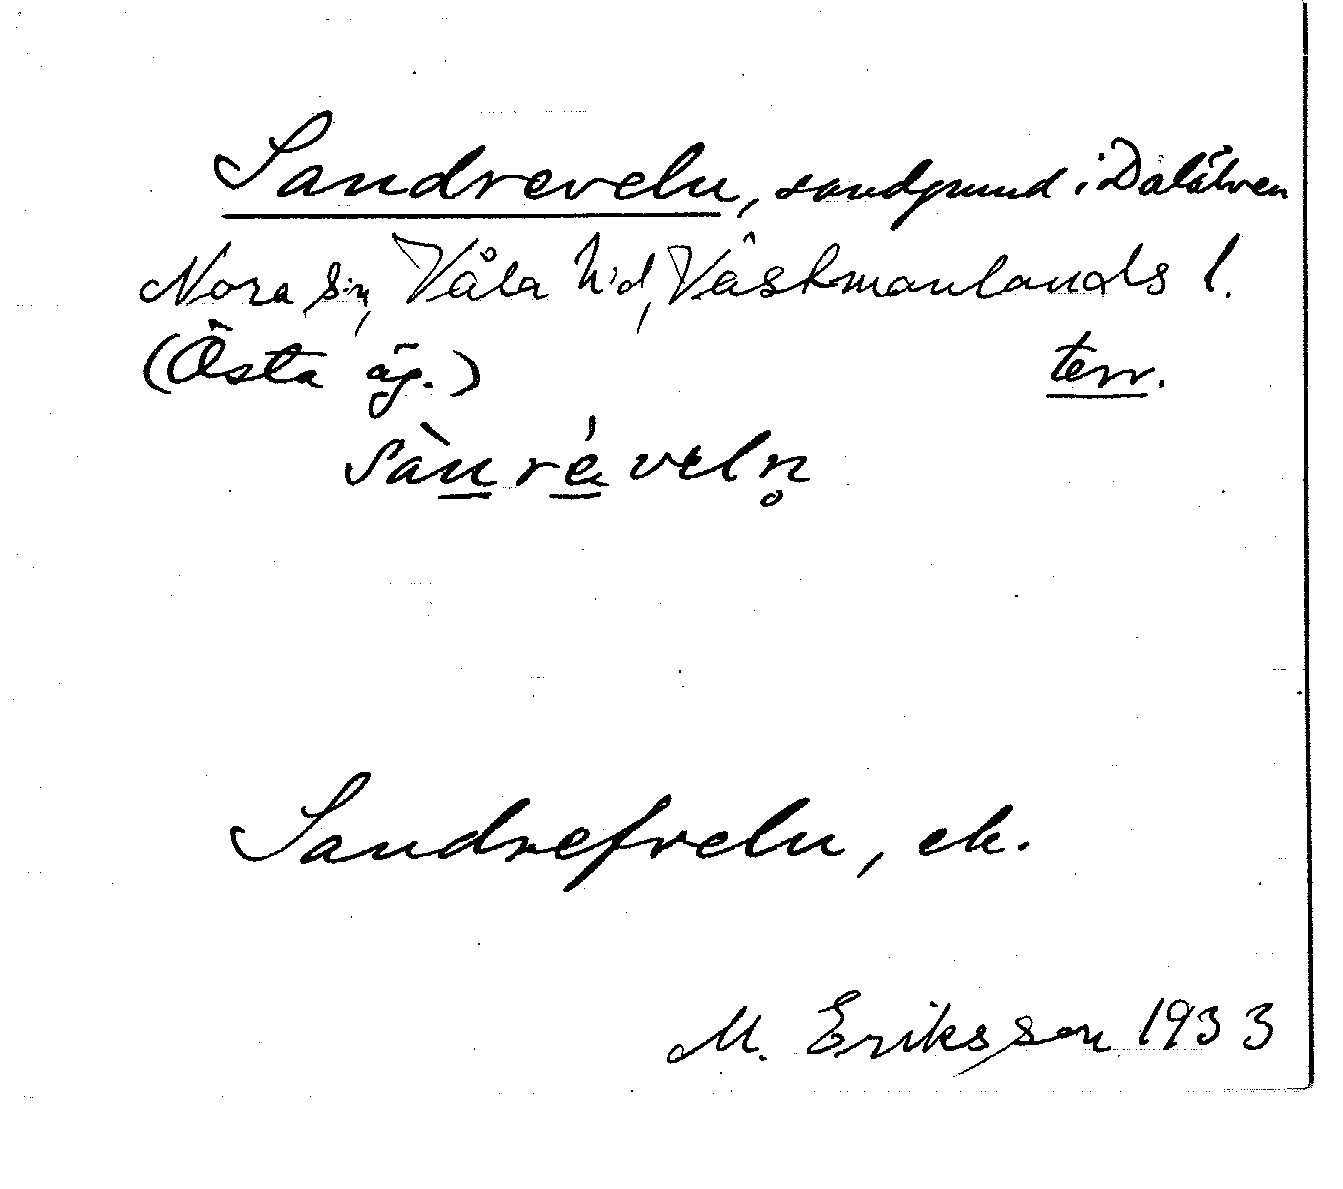 Sandreveln, sandgrund i Dalälven
Nora s:n, Våla h:d, Västmanlands l.
(Östa äg.) terr.
sànréveln̥
Sandrefveln, ek.
M. Eriksson 1933